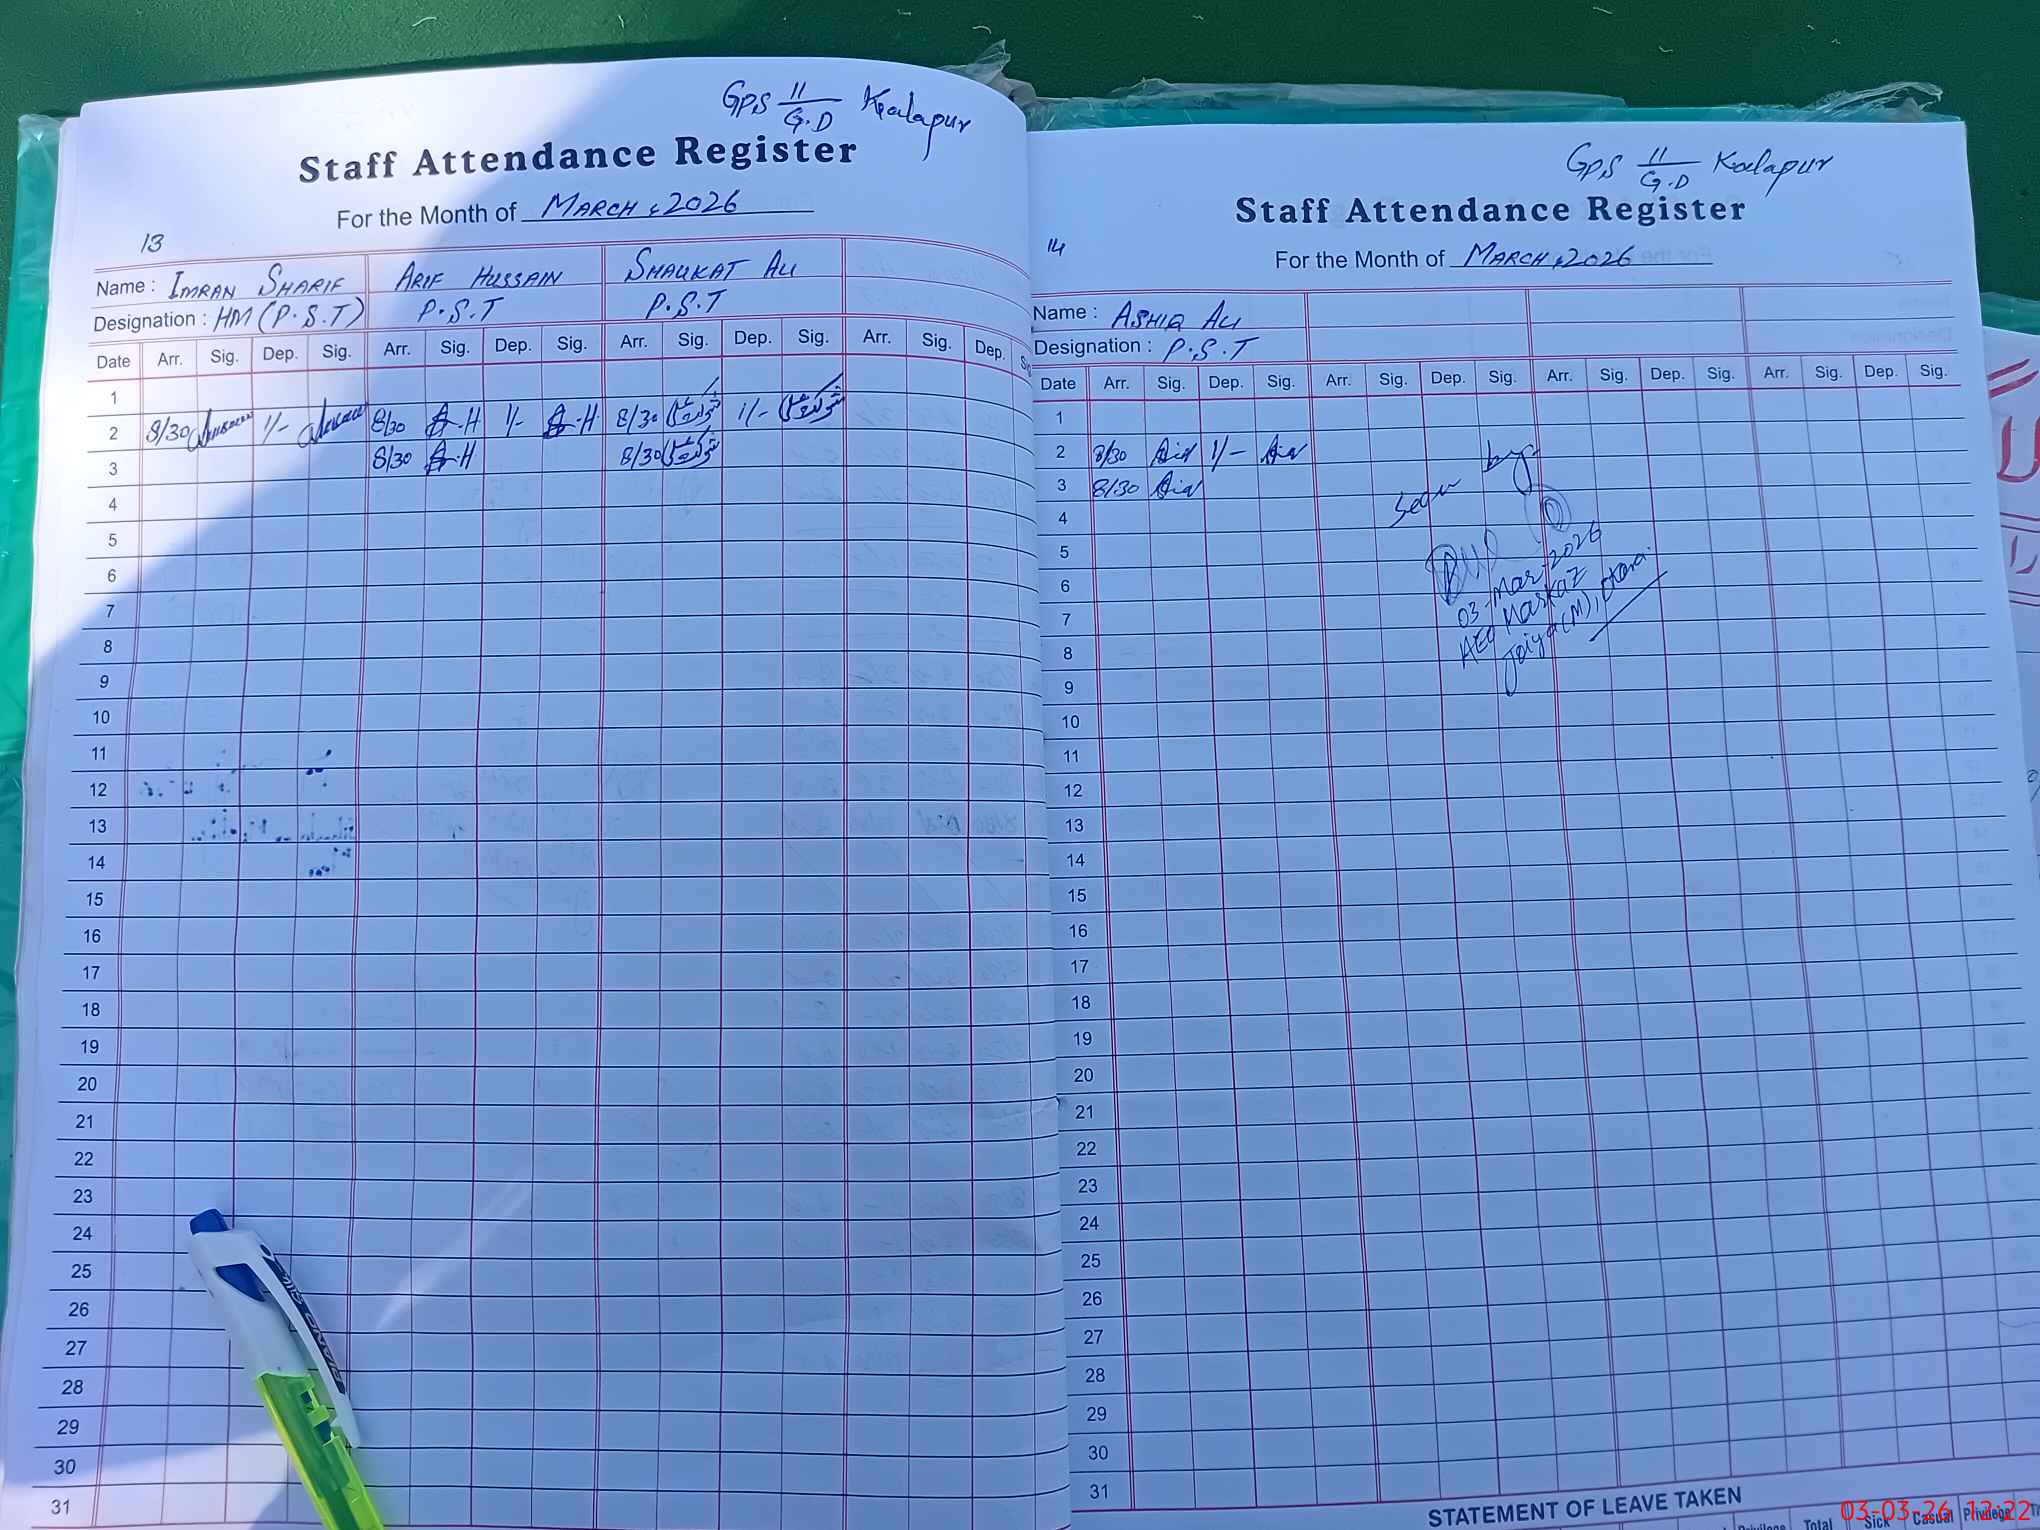 GPS 11/G.D Kalapur
Staff Attendance Register
For the Month of MARCH, 2026
13
Name : IMRAN SHARIF ARIF HUSSAIN SHAUKAT ALI
Designation : HM (P.S.T) P.S.T P.S.T
Date Arr. Sig. Dep. Sig. Arr. Sig. Dep. Sig. Arr. Sig. Dep. Sig. Arr. Sig. Dep.
1
2 8/30 1/- 8/30 A.H 1/- A.H 8/30 شوکت علی 1/- شوکت علی
3 8/30 A.H 8/30 شوکت علی
4
5
6
7
8
9
10
11
12
13
14
15
16
17
18
19
20
21
22
23
24
25
26
27
28
29
30
31
GPS 11/G.D Kalapur
Staff Attendance Register
For the Month of MARCH, 2026
14
Name : ASHIQ ALI
Designation : P.S.T
Date Arr. Sig. Dep. Sig. Arr. Sig. Dep. Sig. Arr. Sig. Dep. Sig. Arr. Sig. Dep. Sig.
1
2 8/30 1/-
3 8/30
4
5
6
7
8
9
10
11
12
13
14
15
16
17
18
19
20
21
22
23
24
25
26
27
28
29
30
31
Seen by
03-Mar-2026
AEO Markaz
Joiya (M), Okara.
STATEMENT OF LEAVE TAKEN
Total Sick Casual Privilege
03-03-26 12:22